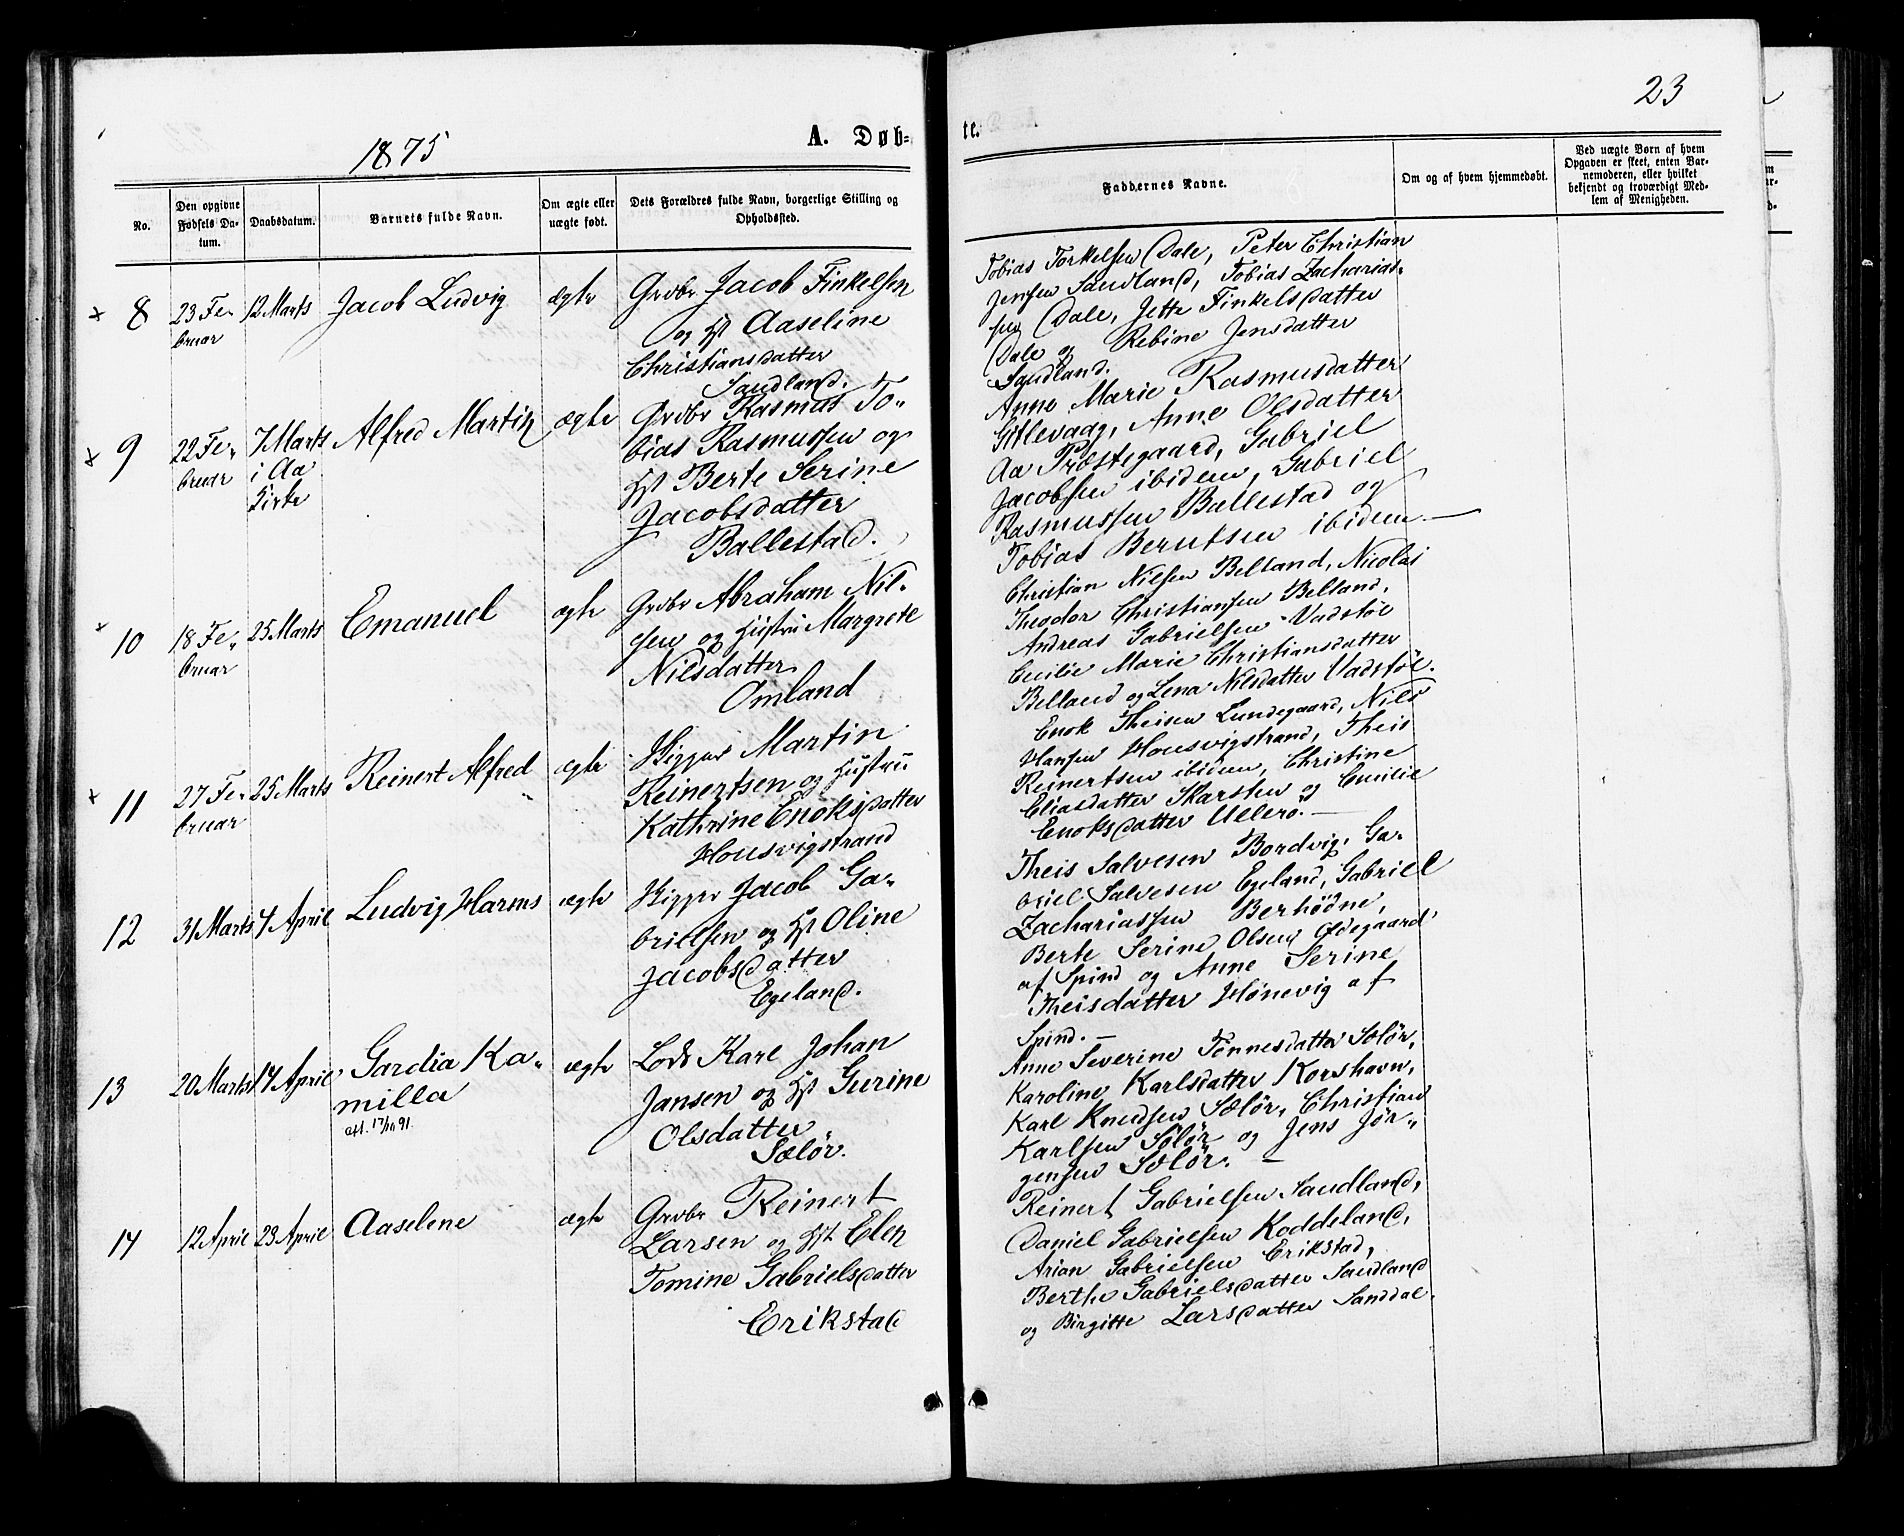 23
1875
A. Døb-
te.
No.
Den opgivne Fødsels Da-tum.
Daabsdatum.
Barnets fulde Navn.
Om ægte eller uægte født.
Dets Forældres fulde Navn, borgerlige Stilling og Opholdssted.
Faddernes Navne.
Om og af hvem hjemmedøbt.
Ved uægte Børn af hvem Opgaven er skeet, enten Bar-nemoderen, eller hvilket bekjendt og troværdigt Med-lem af Menigheden.
× 8
23 Fe-
bruar
12 Marts
Jacob Ludvig
ægte
Grdbr Jacob Finkelsen
og Hst Aaseline
Christiansdatter
Saudland.
Tobias Torkelsen Dale, Peter Christian
Jensen Saudland, Tobias Zacharias-
sen Dale, Jette Finkelsdatter
Dale og Rebine Jensdatter
Saudland.
× 9
22 Fe-
bruar
7 Marts
i Aa
Kirke
Alfred Martin
ægte
Grdbr Rasmus To-
bias Rasmussen og
Hst Berte Serine
Jacobsdatter
Ballestad.
Anne Marie Rasmusdatter
Gitlevaag, Anne Olsdatter
Aa Præstegaard, Gabriel
Jacobsen ibidem, Gabriel
Rasmussen Ballestad og
Tobias Berntsen ibidem.
× 10
18 Fe-
bruar
25 Marts
Emanuel
ægte
Grdbr Abraham Nil-
sen og Hustru Margrete
Nilsdatter
Omland
Christian Nilsen Belland, Nicolai
Theodor Christiansen Belland,
Andreas Gabrielsen Vadstøl
Cecilie Marie Christiansdatter
Belland og Lena Nilsdatter Vadstøl.
× 11
27 Fe-
bruar
25 Marts
Reinert Alfred
ægte
Skipper Martin
Reinertsen og Hustru
Kathrine Enoksdatter
Housvigstrand
Enok Theisen Lundegaard, Nils
Hansen Housvigstrand, Theis
Reinertsen ibidem, Christine
Eliasdatter Skarsten og Cecilie
Enoksdatter Ullerø.
12
31 Marts
4 April
Ludvig Harms
ægte
Skipper Jacob Ga-
brielsen og Hst Oline
Jacobsdatter
Egeland.
Theis Salvesen Bordvig, Ga-
briel Salvesen Egeland, Gabriel
Zachariassen Berhødne,
Berte Serine Olsen Ødegaard
af Spind og Anne Serine
Theisdatter Hønevig af
Spind.
13
20 Marts
14 April
Gardia Ka-
milla
att. 17/10 91.
ægte
Lods Karl Johan
Jansen og Hst Gurine
Olsdatter
Sælør.
Anne Severine Tønnesdatter Sælør,
Karoline Karlsdatter Korshavn,
Karl Knudsen Sælør, Christian
Karlsen Sælør og Jens Jør-
gensen Sælør.
14
12 April
23 April
Aaselene
ægte
Grdbr Reinert
Larsen og Hst Elen
Tomine Gabrielsdatter
Erikstad
Reinert Gabrielsen Saudland,
Daniel Gabrielsen Koddeland,
Arian Gabrielsen Erikstad,
Berthe Gabrielsdatter Saudland
og Birgitte Larsdatter Sanddal.